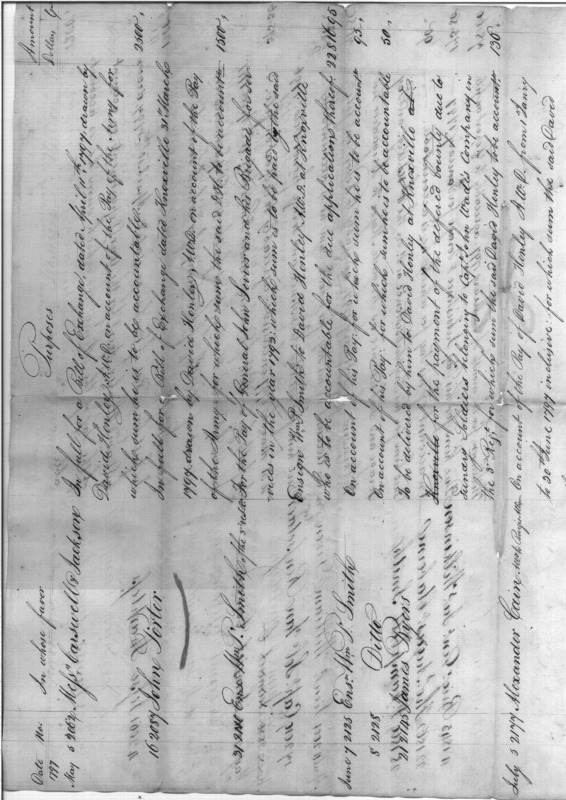 Date No. In whose favor Purposes Amount
1797 Dollars
May 5 Messrs. Carswell & Jackson In full for a Bill of Exchange, dated April 11th 1797, drawn by
David Henley, A.W.D. on account of the Pay of the Army, for
which sum he is to be accountable 2500,
16 2089 John Porter In full for a Bill of Exchange dated Knoxville 31 March
1797 drawn by David Henley, A.W.D. on account of the Pay
of the Army, for which sum the said D.H. is to be accountable 1500,
31 Ensn. Wm. P. Smith, of the 3d Regt. For the Pay of General John Sevier and his Brigade for ser-
vices in the year 1793: which sum is to be paid by the said
Ensign Wm. P. Smith to David Henley A.W.D. at Knoxville
who is to be accountable for the due application thereof 22816.95
June 7 2125 Ensn. Wm. P. Smith On account of his Pay; for which sum he is to be accountable 95,
8 2128 Ditto On account of his Pay; for which sum he is to be accountable 50,
James Byers To be delivered by him to David Henley at Knoxville
for the payment of the deferred bounty due to
sundry Soldiers belonging to Captn. Jno. Wade's Company in
the 3d Regt. for which sum the said David Henley is to be accountable
July 5 2177 Alexander Cain On account of the Pay of David Henley A.W.D. from 1 Jany
to 30th June 1797 inclusive: for which sum the said David